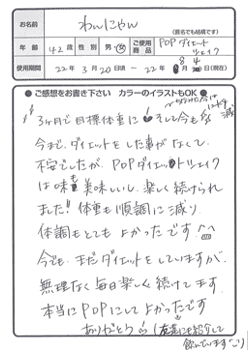 お名前 わんにゃん
(匿名でも結構です)
年齢 42歳 性別 男・女 ご使用商品 POPダイエットシェイク
使用期間 22年3月20日頃 〜 22年8月4日(現在)
●ご感想をお書き下さい カラーのイラストもOK●
3ヶ月で目標体重に そして今も 減
今まで、ダイエットをした事がなくて、
不安でしたが、POPダイエットシェイク
は味も美味しいし、楽しく続けられ
ました! 体重も順調に減り
体調もとてもよかったです^^
今でも、まだダイエットをしていますが、
無理なく毎日楽しく続けてます。
本当にPOPにしてよかったです
ありがとう (友達にも紹介して
飲んでいます